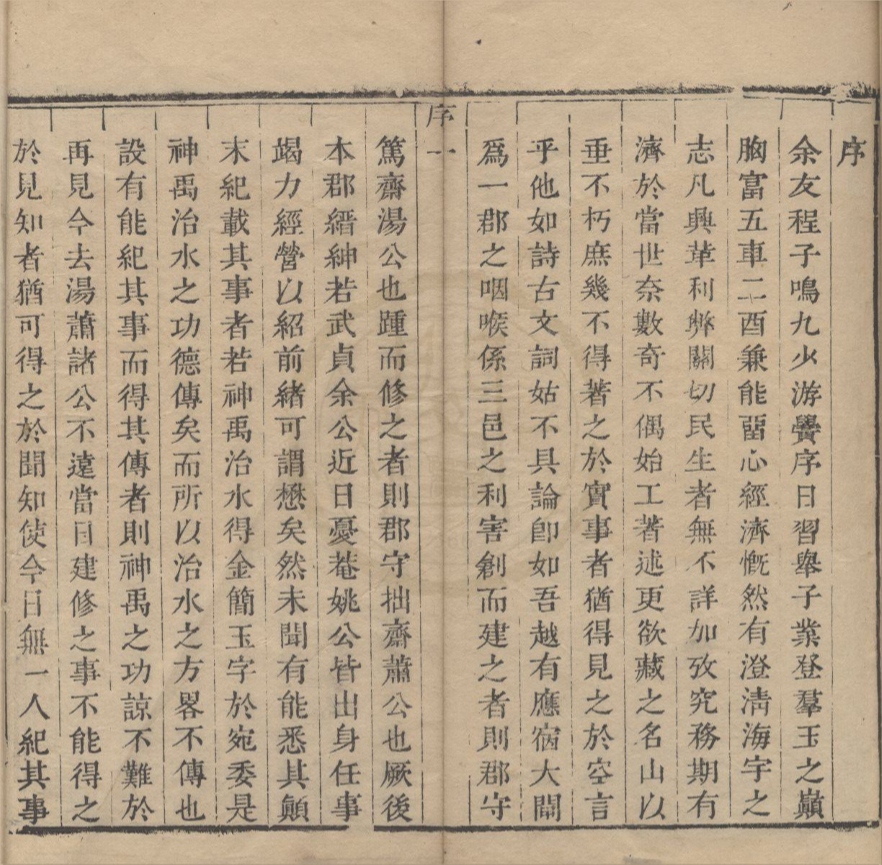 序
余友程子鳴九少游黌序日習舉子業登羣玉之巔
胸富五車二酉兼能畱心經濟慨然有澄清海宇之
志凡興革利弊關切民生者無不詳加攷究務期有
濟於當世奈數奇不偶始工著述更欲藏之名山以
垂不朽庶幾不得著之於實事者猶得見之於空言
乎他如詩古文詞姑不具論卽如吾越有應宿大閘
爲一郡之咽喉係三邑之利害創而建之者則郡守
序 一
篤齋湯公也踵而修之者則郡守拙齋蕭公也厥後
本郡縉紳若武貞余公近日憂菴姚公皆出身任事
竭力經營以紹前緒可謂懋矣然未聞有能悉其顛
末紀載其事者若神禹治水得金簡玉字於宛委是
神禹治水之功德傳矣而所以治水之方畧不傳也
設有能紀其事而得其傳者則神禹之功諒不難於
再見今去湯蕭諸公不遠當日建修之事不能得之
於見知者猶可得之於聞知使今日無一人紀其事